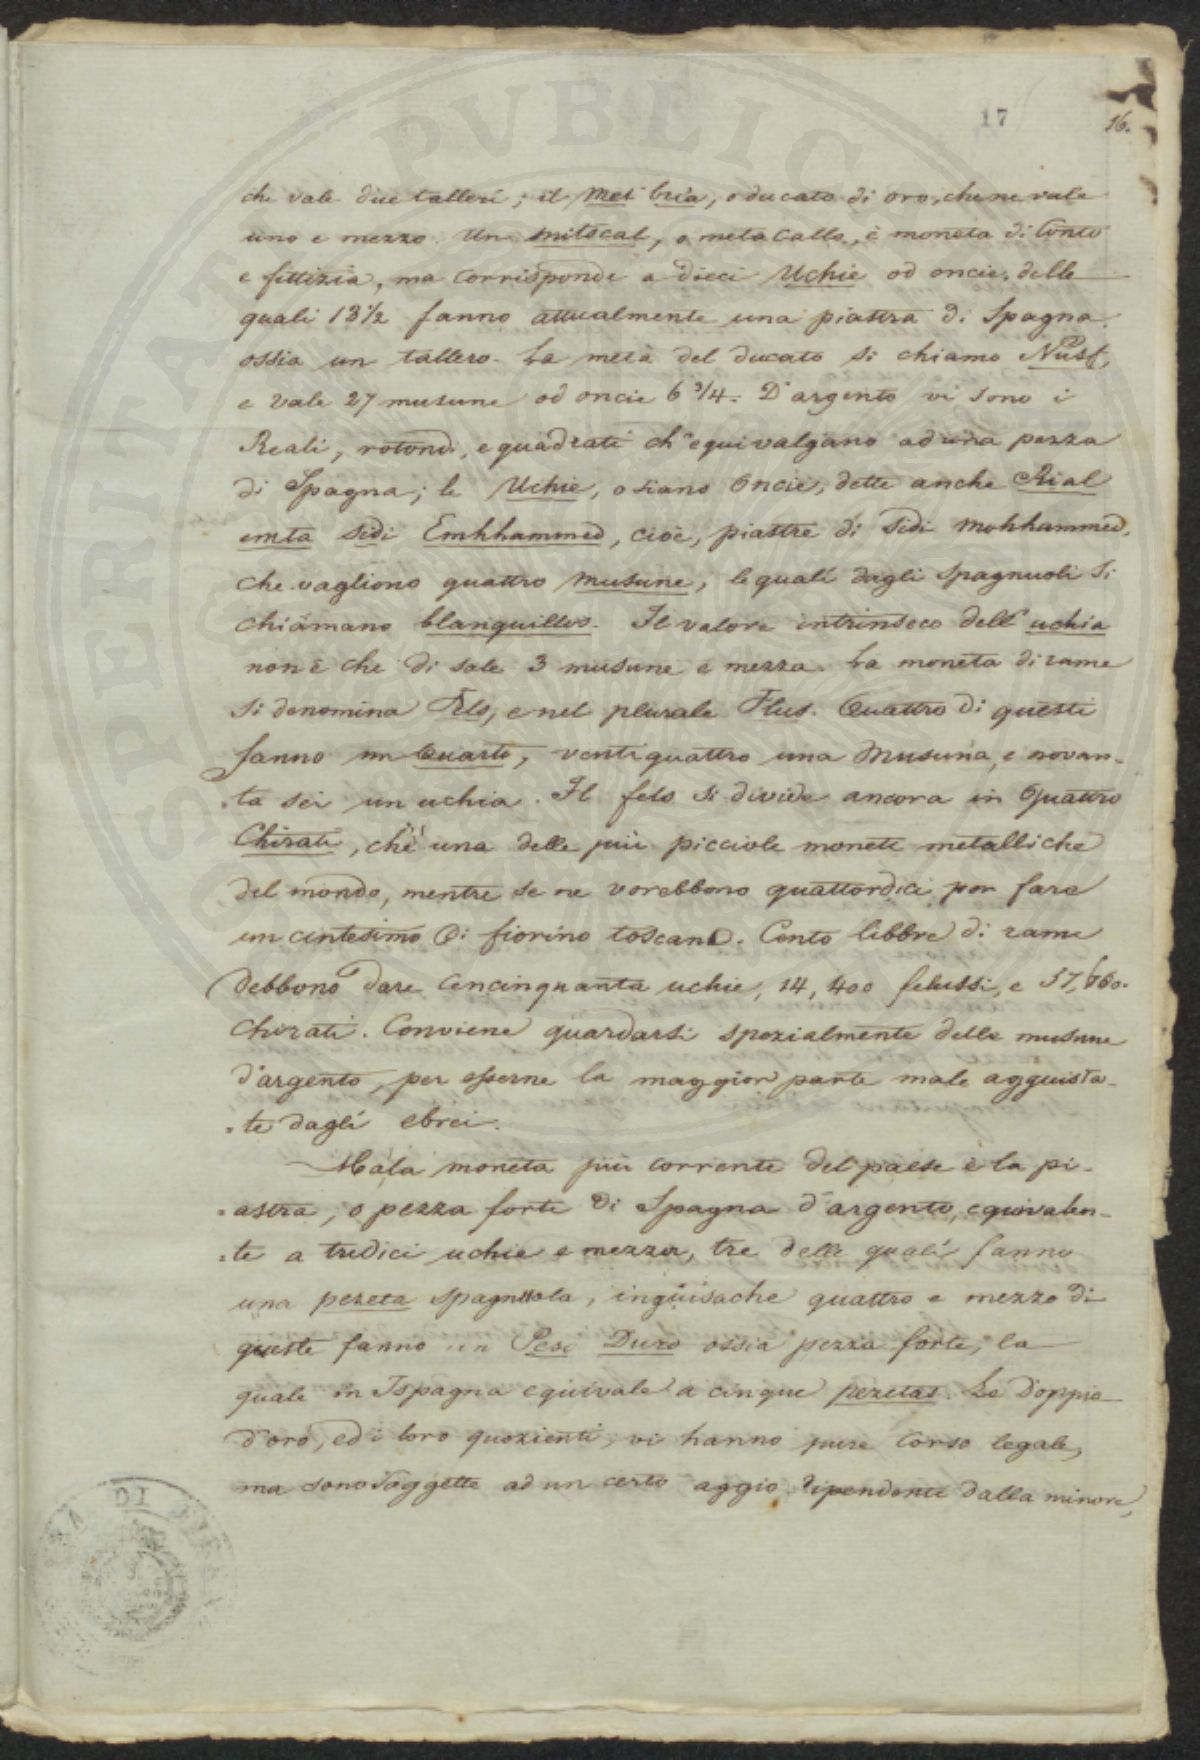 17
16.
che vale due talleri; il Met bria, o ducato di oro, che ne vale
uno e mezzo. Un mitscal, o metacallo, è moneta di Conto
e fittizia, ma corrisponde a dieci Uchie od oncie, delle
quali 13½ fanno attualmente una piastra di Spagna
ossia un tallero. La metà del ducato si chiama Nusf,
e vale 27 musune od oncie 6¾. D'argento vi sono i
Reali, rotondi, e quadrati ch'equivalgano ad una pezza
di Spagna; le Uchie, o siano Oncie, dette anche Rial
emta sidi Emhhammed, cioè, piastre di Sidi Mohhammed,
che vagliono quattro musune, le quali dagli Spagnuoli si
chiamano blanquillos. Il valore intrinseco dell'uchia
non è che di sole 3 musune e mezza. La moneta di rame
si denomina Fels, e nel plurale Flus. Quattro di questi
fanno un Quarto, ventiquattro una Musuna, e novan-
-ta sei un uchia. Il fels si divide ancora in Quattro
Chirati, ch'è una delle più picciole monete metalliche
del mondo, mentre se ne vorebbono quattordici por fare
un centesimo di fiorino toscano. Cento libbre di rame
debbono dare cencinquanta uchie, 14,400 felussi, e 57,600.
Chirati. Conviene guardarsi spezialmente delle musune
d'argento, per esserne la maggior parte male agguista-
-te dagli ebrei.
Ma la moneta più corrente del paese è la pi-
-astra, o pezza forte di Spagna d'argento, equivalen-
-te a tredici uchie e mezza, tre delle quali fanno
una pezeta Spagnuola, inguisache quattro e mezzo di
queste fanno un Peso Duro ossia pezza forte, la
quale in Ispagna equivale a cinque pezetas. Le Doppie
d'oro, ed i loro quozienti, vi hanno pure Corso legale,
ma sono soggette ad un certo aggio dipendente dalla minore,